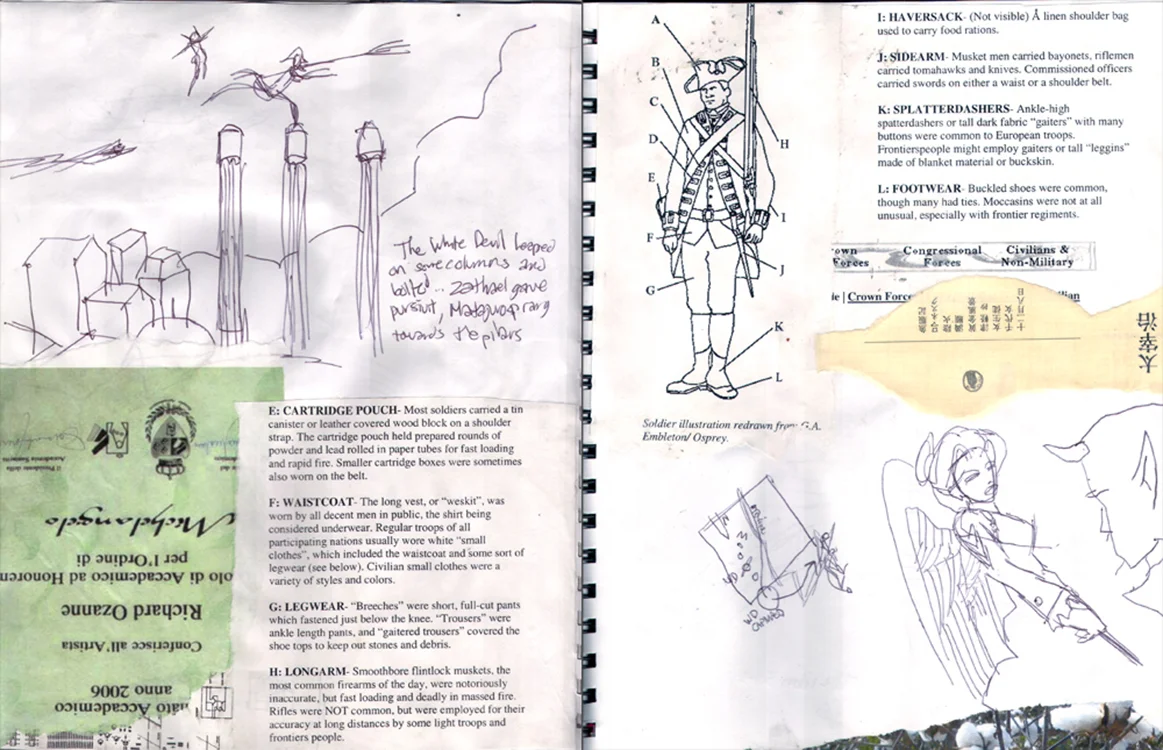 The White Devil leeped
on some columns and
bolted .. Zathael gave
towards the pillars
nato Accademico
anno 2006
Conferisce all'Artista
Richard Ozanne
olo di Accademico ad Honoren
per l'Ordine di
Michelangelo
Il Presidente della
E: CARTRIDGE POUCH- Most soldiers carried a tin
canister or leather covered wood block on a shoulder
strap. The cartridge pouch held prepared rounds of
powder and lead rolled in paper tubes for fast loading
and rapid fire. Smaller cartridge boxes were sometimes
also worn on the belt.
F: WAISTCOAT- The long vest, or “weskit”, was
worn by all decent men in public, the shirt being
considered underwear. Regular troops of all
participating nations usually wore white “small
clothes”, which included the waistcoat and some sort of
legwear (see below). Civilian small clothes were a
variety of styles and colors.
G: LEGWEAR- “Breeches” were short, full-cut pants
which fastened just below the knee. “Trousers” were
ankle length pants, and “gaitered trousers” covered the
shoe tops to keep out stones and debris.
H: LONGARM- Smoothbore flintlock muskets, the
most common firearms of the day, were notoriously
inaccurate, but fast loading and deadly in massed fire.
Rifles were NOT common, but were employed for their
accuracy at long distances by some light troops and
frontiers people.
A
B
C
D
E
F
G
H
I
J
K
L
Soldier illustration redrawn from G.A.
Embleton/ Osprey.
I: HAVERSACK- (Not visible) Å linen shoulder bag
used to carry food rations.
J: SIDEARM- Musket men carried bayonets, riflemen
carried tomahawks and knives. Commissioned officers
carried swords on either a waist or a shoulder belt.
K: SPLATTERDASHERS- Ankle-high
spatterdashers or tall dark fabric “gaiters” with many
buttons were common to European troops.
Frontierspeople might employ gaiters or tall “leggins”
made of blanket material or buckskin.
L: FOOTWEAR- Buckled shoes were common,
though many had ties. Moccasins were not at all
unusual, especially with frontier regiments.
own Forces
Congressional Forces
Civilians & Non-Military
| Crown Forc
ilian
十二月八日
千代女
女生徒
太宰治